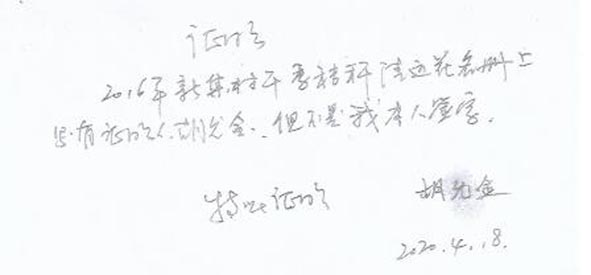 证明
2016年新集村干秸秆清运花名册上
虽有证明人胡允金,但不是我本人签字。
特此证明 胡允金
2020.4.18.